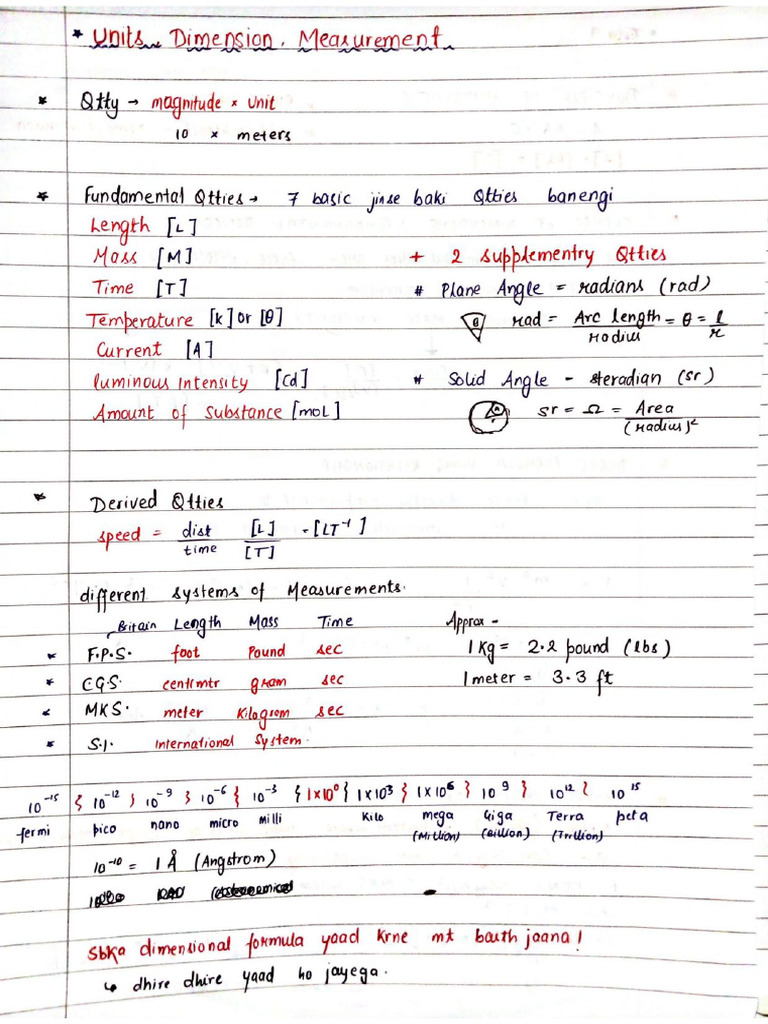 * Units, Dimension, Measurement
* Qtty → magnitude × Unit
10 × meters
* Fundamental Qtties → 7 basic jinse baki Qtties banengi
Length [L]
Mass [M] + 2 Supplementry Qtties
Time [T] # Plane Angle = radians (rad)
Temperature [K] or [θ] θ rad = Arc length / radius = θ = l / r
Current [A]
luminous intensity [Cd] # Solid Angle - steradian (Sr)
Amount of Substance [moL] Sr = Ω = Area / (radius)²
* Derived Qtties
speed = dist / time [L] / [T] = [LT⁻¹]
different systems of Measurements.
Britain Length Mass Time Approx -
* F.P.S. foot Pound sec 1 Kg = 2.2 pound (lbs)
* C.G.S. centimtr gram sec 1 meter = 3.3 ft
* MKS. meter Kilogram sec
* S.I. International System.
10⁻¹⁵ { 10⁻¹² } 10⁻⁹ } 10⁻⁶ { 10⁻³ { 1×10⁰ } 1×10³ } 1×10⁶ { 10⁹ { 10¹² { 10¹⁵
fermi pico nano micro Milli Kilo mega Giga Terra peta
(Million) (Billion) (Trillion)
10⁻¹⁰ = 1 Å (Angstrom)
Sbka dimensional formula yaad krne mt baith jaana!
↳ dhire dhire yaad ho jayega.